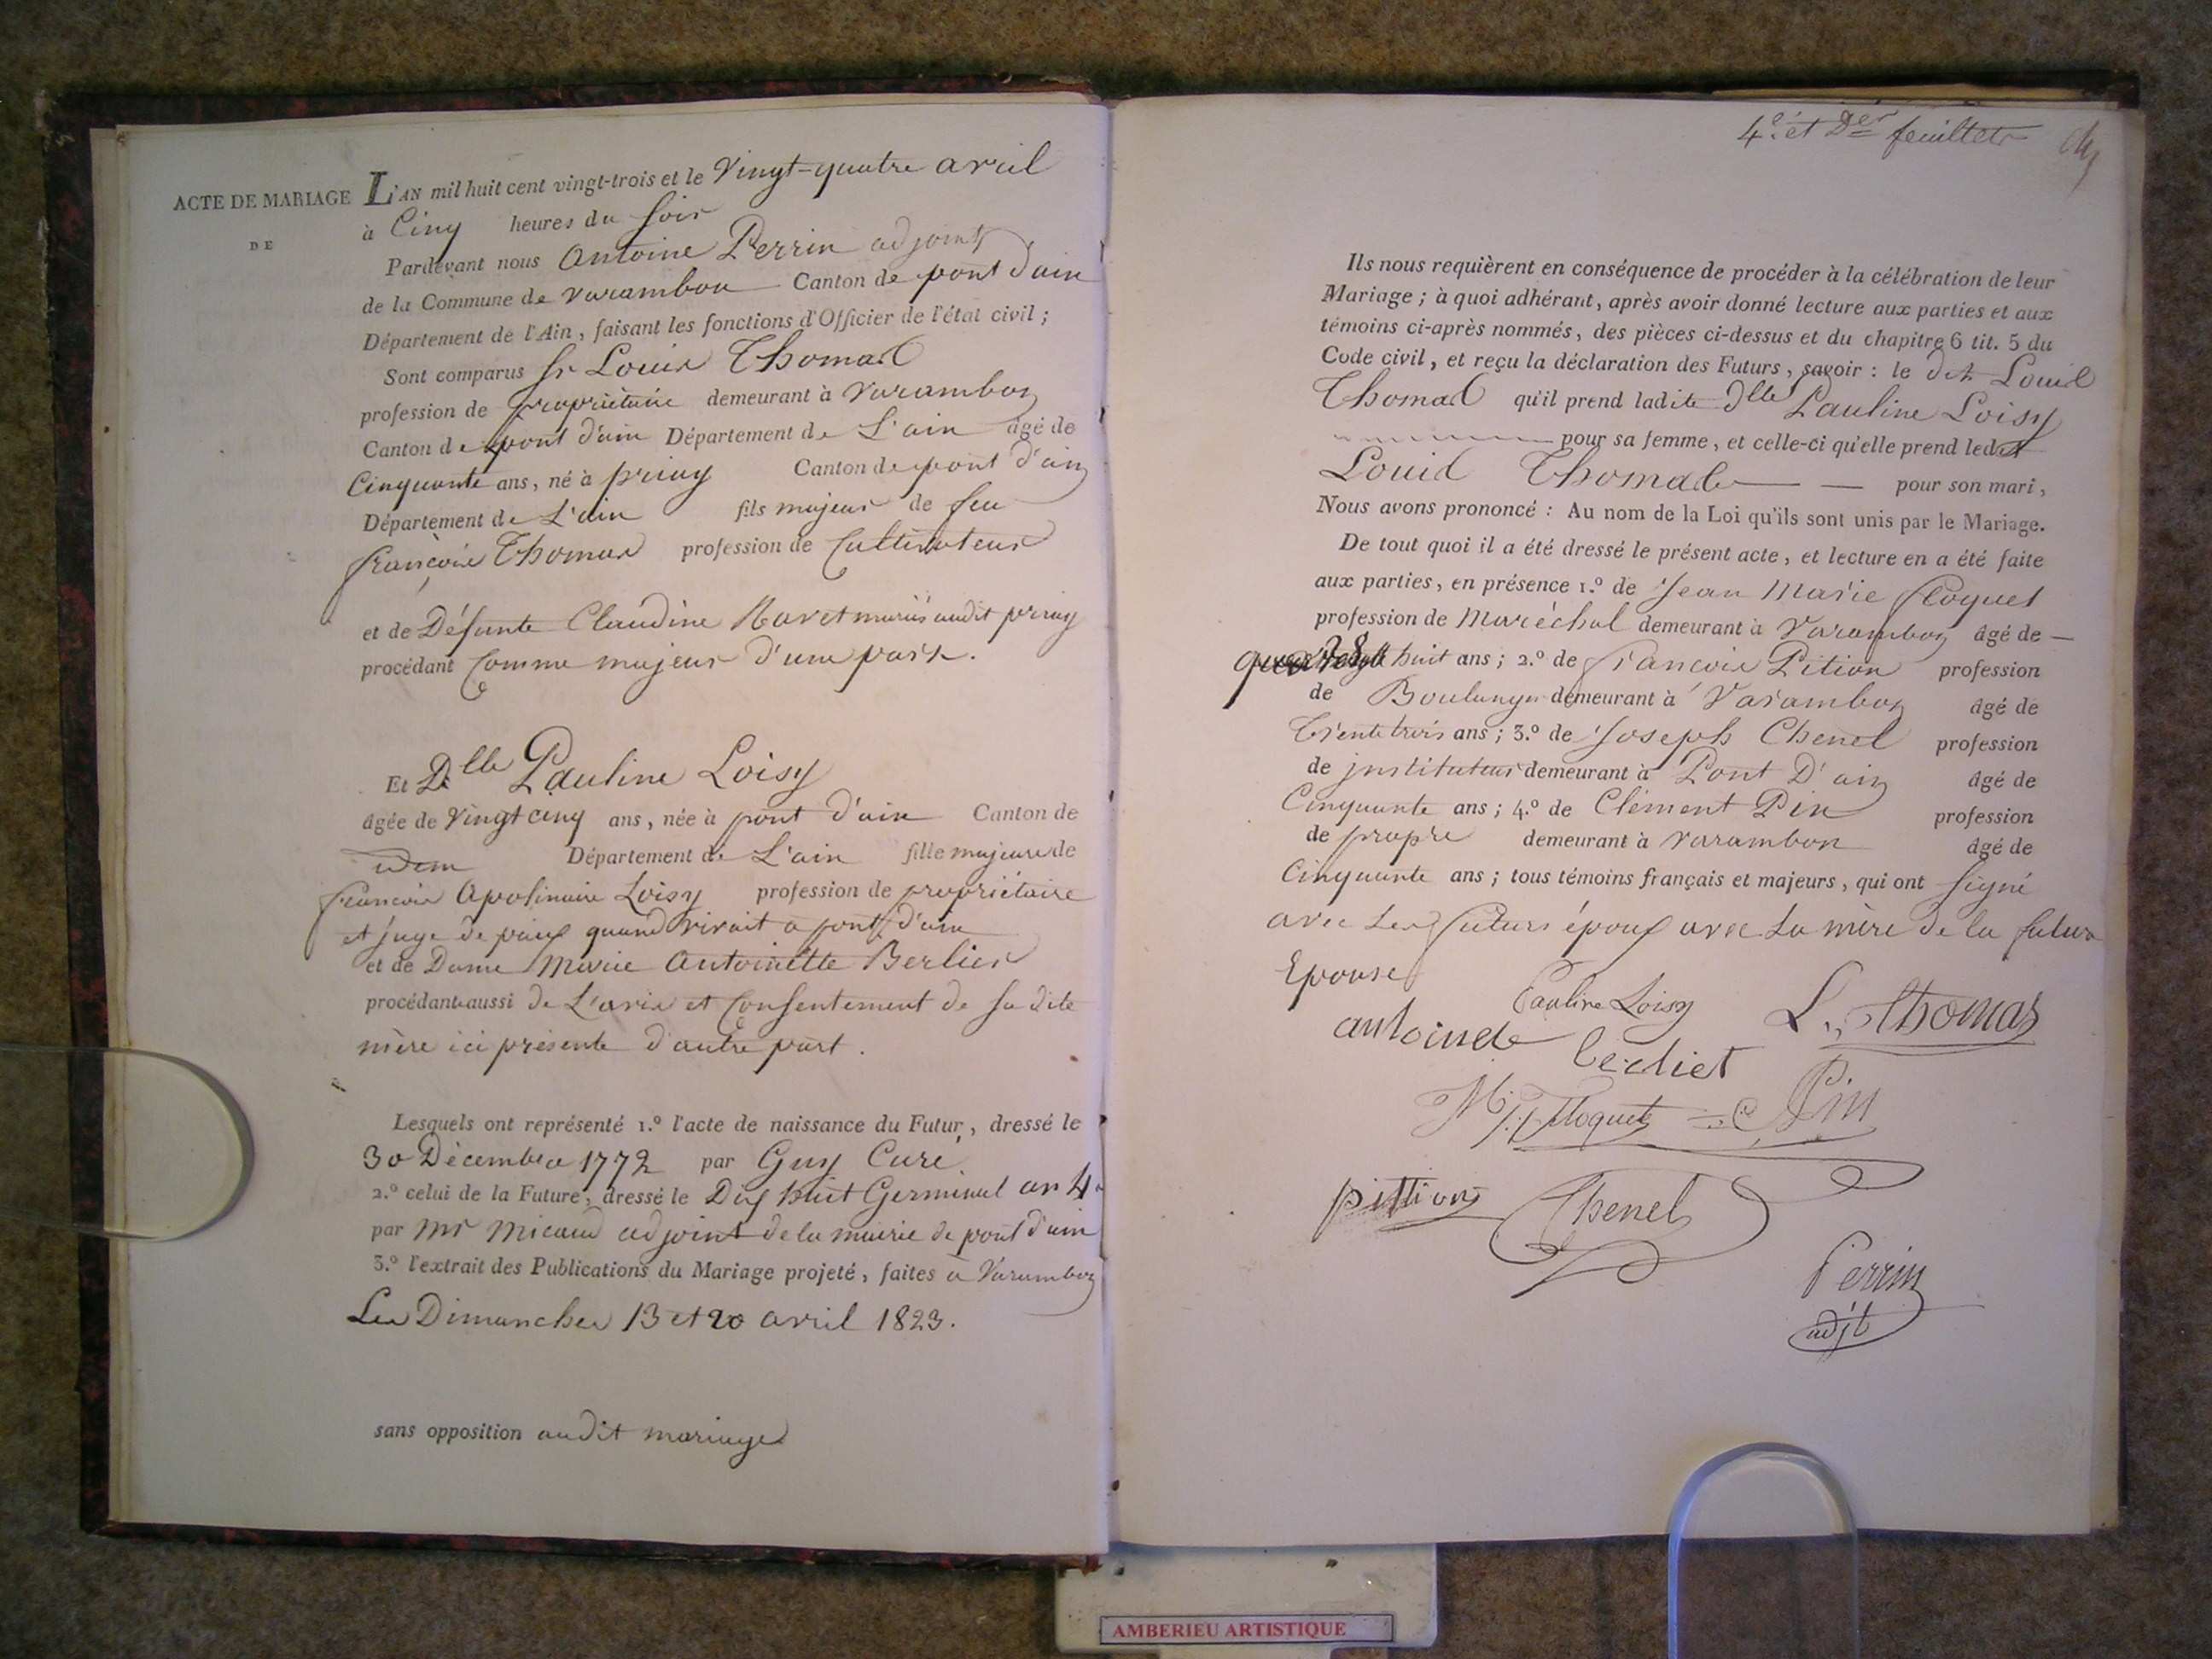 ACTE DE MARIAGE
DE
L'AN mil huit cent vingt-trois et le Vingt-quatre avril
à Cinq heures du soir
Pardevant nous Antoine Perrin adjoint
de la Commune de varambon Canton de pont d'ain
Département de l'Ain, faisant les fonctions d'Officier de l'état civil ;
Sont comparus Sr Louis Thomas
profession de propriétaire demeurant à Varambon
Canton de pont d'ain Département de L'ain âgé de
Cinquante ans, né à priay Canton de pont d'ain
Département de L'ain fils majeur de feu
françois Thomas profession de Cultivateur
et de Défunte Claudine mariés audit priay
procédant Comme majeur d'une part.
Et Dlle Pauline Loisy
âgée de Vingt cinq ans, née à pont d'ain Canton de
idem Département de L'ain fille majeure de
francois Apolinaire Loisy profession de propriétaire
et juge de paix quand vivait a pont d'ain
et de Dame Marie Antoinette Berlier
procédante aussi de L'avis et Consentement de sa dite
mère ici présente d'autre part.
Lesquels ont représenté 1.º l'acte de naissance du Futur, dressé le
30 Décembre 1772 par Guy Curé
2.º celui de la Future, dressé le Dix huit Germinal an 4
par Mr Micaud adjoint de la mairie de pont d'ain
3.º l'extrait des Publications du Mariage projeté, faites à Varambon
Les Dimanches 13 et 20 avril 1823.
sans opposition audit mariage
4e et Der feuillets
Ils nous requièrent en conséquence de procéder à la célébration de leur
Mariage ; à quoi adhérant, après avoir donné lecture aux parties et aux
témoins ci-après nommés, des pièces ci-dessus et du chapitre 6 tit. 5 du
Code civil, et reçu la déclaration des Futurs, savoir : le dit Louis
Thomas qu'il prend ladite dlle Pauline Loisy
pour sa femme, et celle-ci qu'elle prend ledit
Louis Thomas pour son mari,
Nous avons prononcé : Au nom de la Loi qu'ils sont unis par le Mariage.
De tout quoi il a été dressé le présent acte, et lecture en a été faite
aux parties, en présence 1.º de Jean Marie floquet
profession de Maréchal demeurant à Varambon âgé de
huit ans ; 2.º de francois Pition profession
de Boulanger demeurant à Varambon âgé de
Trente trois ans ; 3.º de Joseph Chenel profession
de instituteur demeurant à Pont D'ain âgé de
Cinquante ans ; 4.º de Clément Pin profession
de propre demeurant à varambon âgé de
Cinquante ans ; tous témoins français et majeurs, qui ont signé
avec Les futurs époux avec La mère de la future
Epouse
Pauline Loisy L. Thomas
antoinete berliet
floquet C Pin
pittion Chenel
Perrin
adjt
AMBERIEU ARTISTIQUE